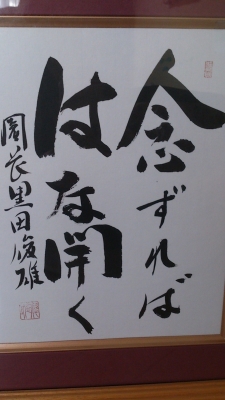 念ずれば
はな開く
園長黒田俊雄